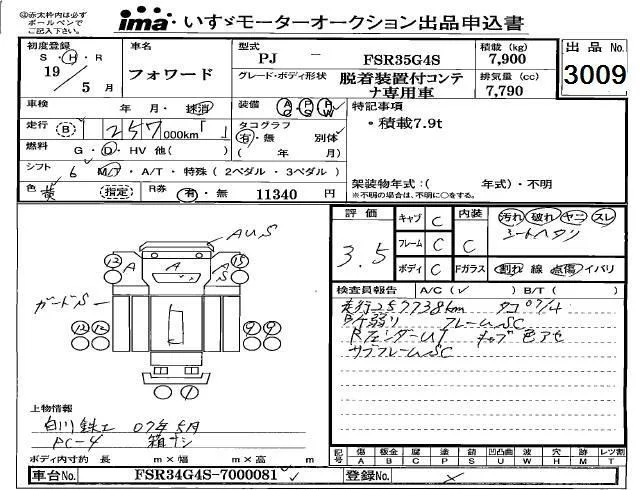 ㊟赤太枠内は必ず
ボールペンで
ご記入下さい。
ima・いすゞモーターオークション出品申込書
初度登録 S・H・R 19 5月
車名 フォワード
型式 PJ － FSR35G4S
積載 (kg) 7,900
出品 No. 3009
グレード・ボディ形状 脱着装置付コンテナ専用車
排気量 (cc) 7,790
車検 年 月・抹消
装備 AC PS PW
特記事項
・積載7.9t
走行 (B) 257,000km「 」
タコグラフ 有・無 別体 ( 年 月)
燃料 G・D・HV 他( )
シフト 6 M/T・A/T・特殊 (2ペダル・3ペダル)
架装物年式:( 年式)・不明
※不明の場合は、不明に○をする。
色 黄 (指定) R券 有・無 11340 円
評価 3.5
キャブ C 内装 C
フレーム C
ボディ C Fガラス
汚れ 破れ ヤニ スレ
シートヘタリ
割れ 線 点傷 イバリ
検査員報告 A/C(✓) B/T( )
走行257738km タコ07/4
B/T弱リ フレームSC
RフェンダーU1 キャブ色アセ
サブフレームSC
AUS
A A A
12 15
ガードS
12 12 9 9
0 0
上物情報
白川鉄工 07年5月
PC-4 箱ナシ
ボディ内寸約 長 m×幅 m×高 m
記号 傷 A 板金 B 腐 C 塗 P 錆 S 凹凸曲 U 波 W 穴 H 痕 M レツ割 T
車台No. FSR34G4S-7000081
登録No.